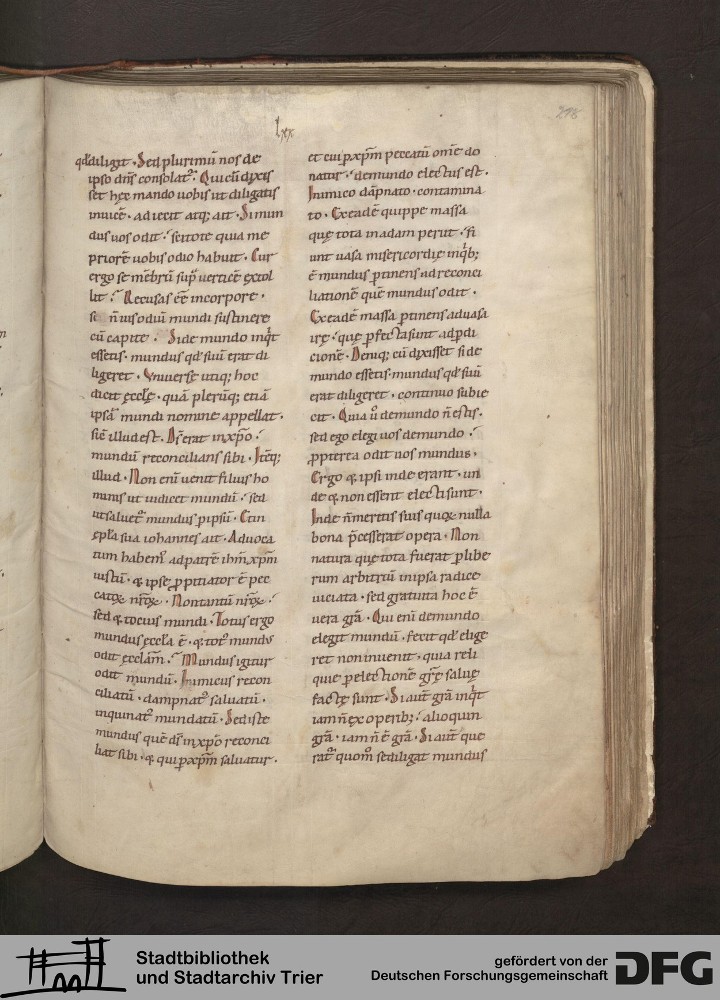 lxx
218
qd diligit. Sed plurimū nos de
ipso dn̄s consolat᷒. Qui cū dixis
set hęc mando uobis ut diligatis
inuicē. adiecit atq; ait. Si mun
dus uos odit. scitote quia me
priorē uobis odio habuit. Cur
ergo se mēbrū sup̄ uerticē extol
lit. Recusas eē in corpore.
si n̄ uis odiū mundi sustinere
cū capite. Si de mundo inqͥt
essetis. mundus qd̄ suū erat di
ligeret. Vniuersę utiq; hoc
dicit ęccłę. quā plerūq; etiā
ipsā mundi nomine appellat.
sic̄ illud est. Ds̄ erat in xp̄o
mundū reconcilians sibi. Itēq;
illud. Non enī uenit filius ho
minis ut iudicet mundū. sed
ut saluet᷒ mundus p ipsū. Et in
ępła sua iohannes ait. Aduoca
tum habem᷒ ad patrē ihm̄ xp̄m
iustū. & ipse ppitiator ē pec
catoꝝ nr̄oꝝ. Non tantū nr̄oꝝ.
sed & totius mundi. Totus ergo
mundus ęccła ē. & tot᷒ mundus
odit ęccłam. Mundus igitur
odit mundū. Inimicus recon
ciliatū. dampnat᷒ saluatū.
inquinat᷒ mundatū. Sed iste
mundus quē ds̄ in xp̄o reconci
liat sibi. & qui p xp̄m saluatur.
et cui p xp̄m peccatū om̄e do
natur. de mundo electus est.
Inimico dāpnato. contamina
to. Ex eadē quippe massa
quę tota in adam periit. fi
unt uasa misericordię in qͥb;
ē mundus ptinens ad reconci
liationē quē mundus odit.
Ex eadē massa ptinens ad uasa
irę. quę pfecta sunt ad pdi
cionē. Deniq; cū dixisset si de
mundo essetis mundus qd̄ suū
erat diligeret. continuo subie
cit. Quia u᷒o de mundo n̄ estis.
sed ego elegi uos de mundo.
ꝓpterea odit uos mundus.
Ergo & ipsi inde erant. un
de & non essent electi sunt.
Inde n̄ meritis suis quoꝝ nulla
bona p̄cesserat opera. Non
natura quę tota fuerat p libe
rum arbitriū in ipsa radice
uiciata. sed gratuita hoc ē
uera grā. Qui enī de mundo
elegit mundū. fecit qd̄ elige
ret non inuenit. quia reli
quię p electionē grę̄ saluę
factę sunt. Si aut̄ grā inqͥt
iam n̄ ex operib; alioquin
grā. iam n̄ ē grā. Si aut̄ quę
rat᷒ quom̊ se diligat mundus
Stadtbibliothek
und Stadtarchiv Trier
gefördert von der
Deutschen Forschungsgemeinschaft
DFG